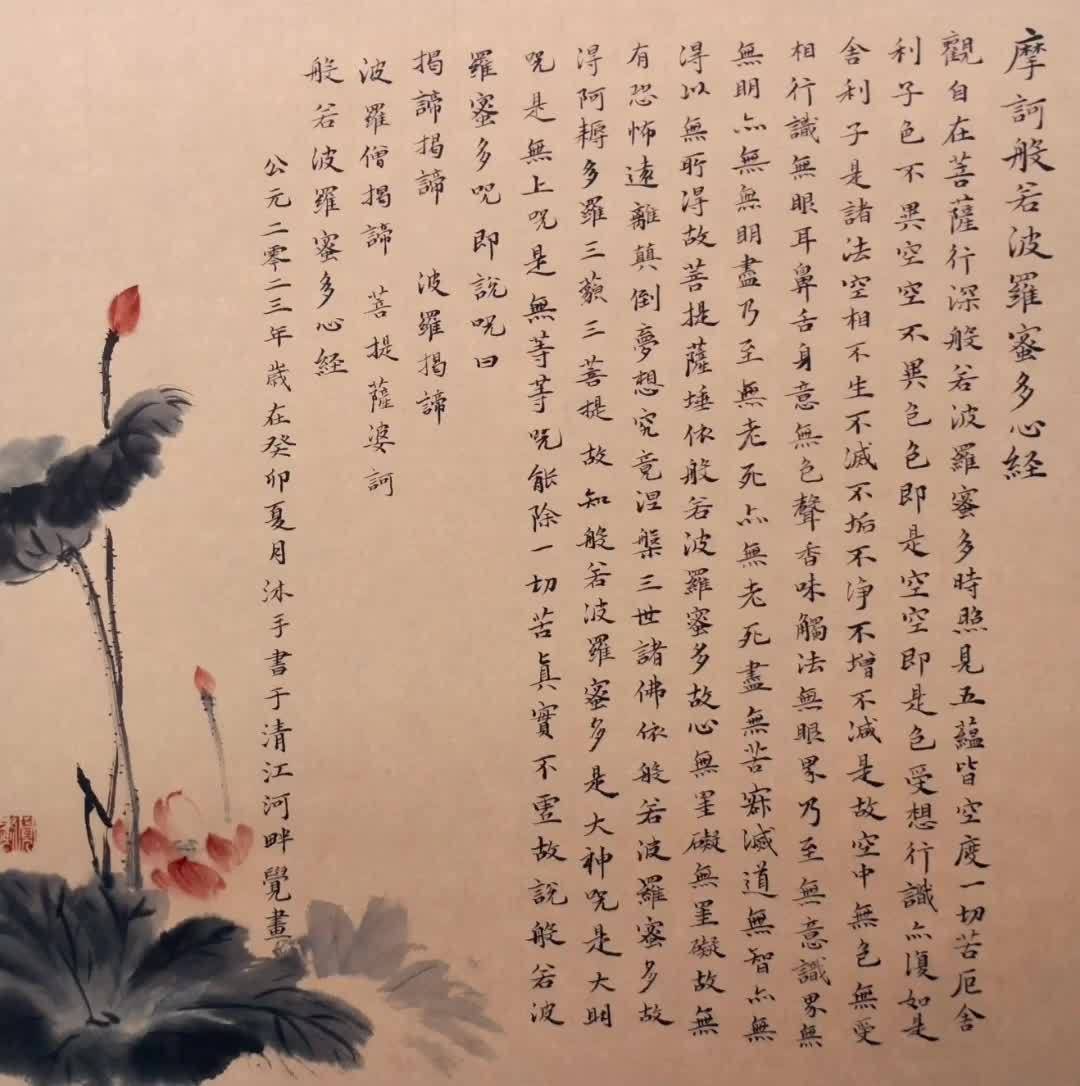 摩訶般若波羅蜜多心経
觀自在菩薩行深般若波羅蜜多時照見五蘊皆空度一切苦厄舍
利子色不異空空不異色色即是空空即是色受想行識亦復如是
舍利子是諸法空相不生不滅不垢不净不增不減是故空中無色無受
想行識無眼耳鼻舌身意無色聲香味觸法無眼界乃至無意識界無
無明亦無無明盡乃至無老死亦無老死盡無苦寂滅道無智亦無
得以無所得故菩提薩埵依般若波羅蜜多故心無罣礙無罣礙故無
有恐怖遠離顛倒夢想究竟涅槃三世諸佛依般若波羅蜜多故
得阿耨多羅三藐三菩提故知般若波羅蜜多是大神咒是大明
咒是無上咒是無等等咒能除一切苦真實不虛故說般若波
羅蜜多咒即說咒曰
揭諦揭諦 波羅揭諦
波羅僧揭諦 菩提薩婆訶
般若波羅蜜多心経
公元二零二三年歲在癸卯夏月沐手書于清江河畔覺畫